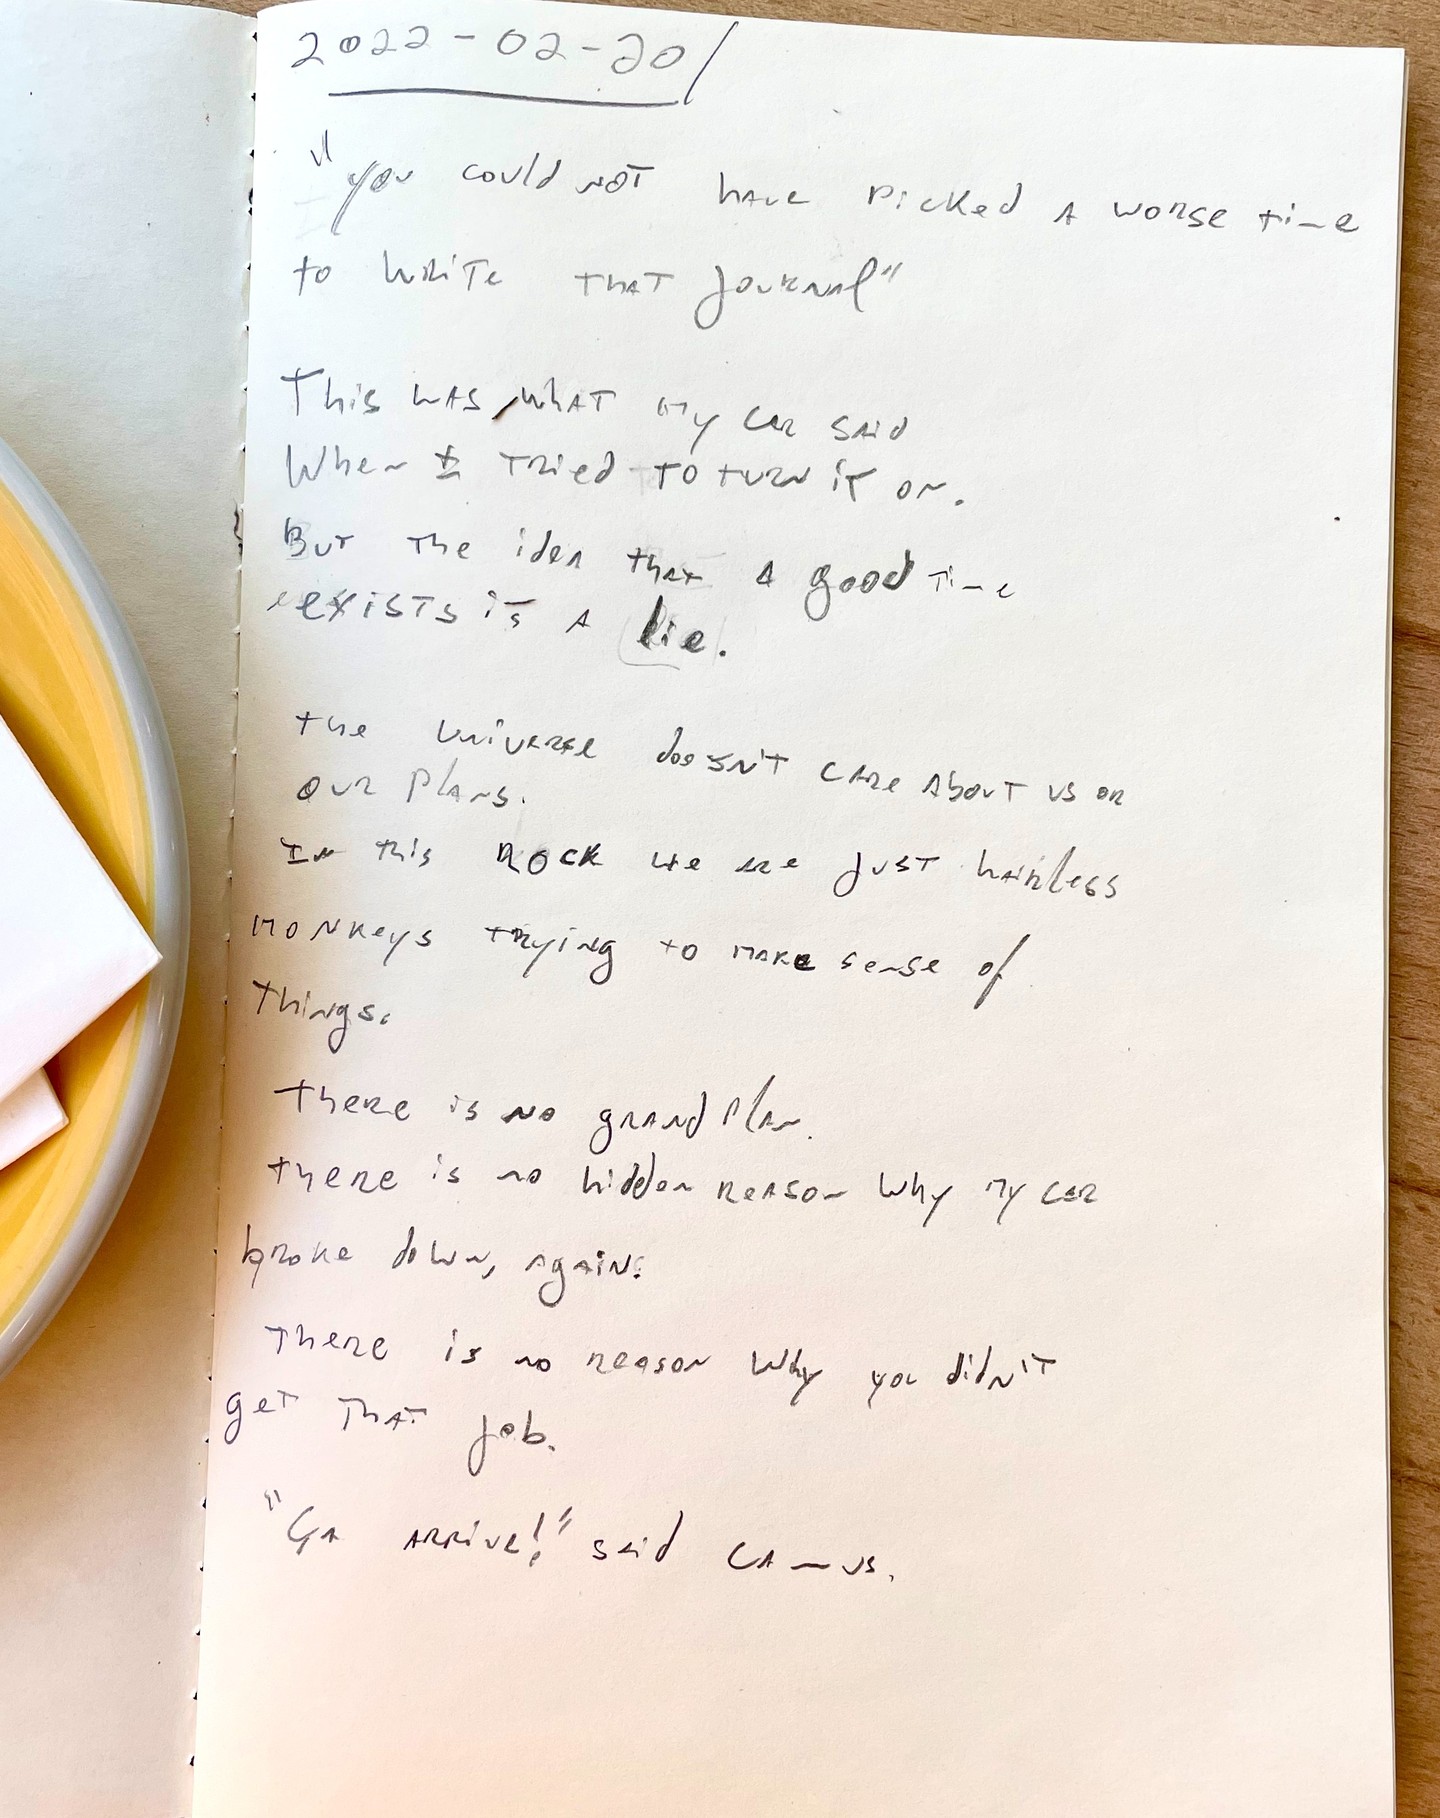 2022-02-20/
"you could not have picked a worse time
to write that journal"
This was what my car said
When I tried to turn it on.
But the idea that a good time
exists is a lie.
the universe doesn't care about us or
our plans.
In this rock we are just hairless
monkeys trying to make sense of
things.
there is no grand plan.
there is no hidden reason why my car
broke down, again.
There is no reason why you didn't
get that job.
"Ça arrive!" said Camus.